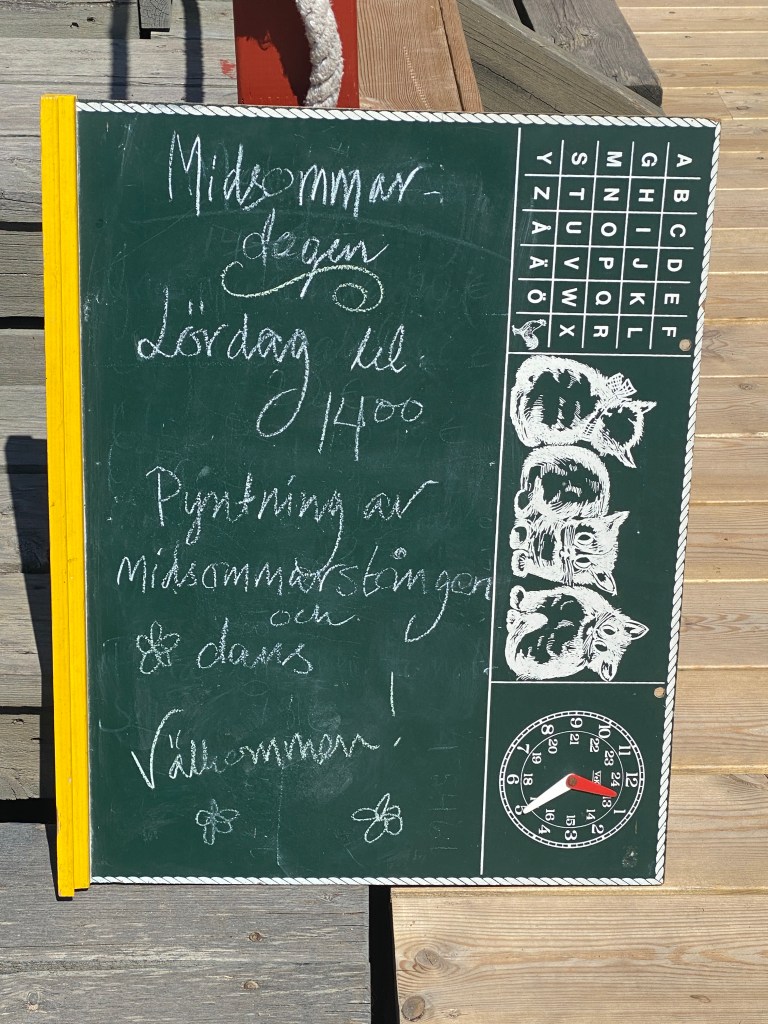 Midsommar-
dagen
Lördag kl.
1400
Pyntning av
midsommarstången
och
dans
Välkommen!
A B C D E F
G H I J K L
M N O P Q R
S T U V W X
Y Z Å Ä Ö
12 1 2 3 4 5 6 7 8 9 10 11
24 13 14 15 16 18 19 20 21 22 23